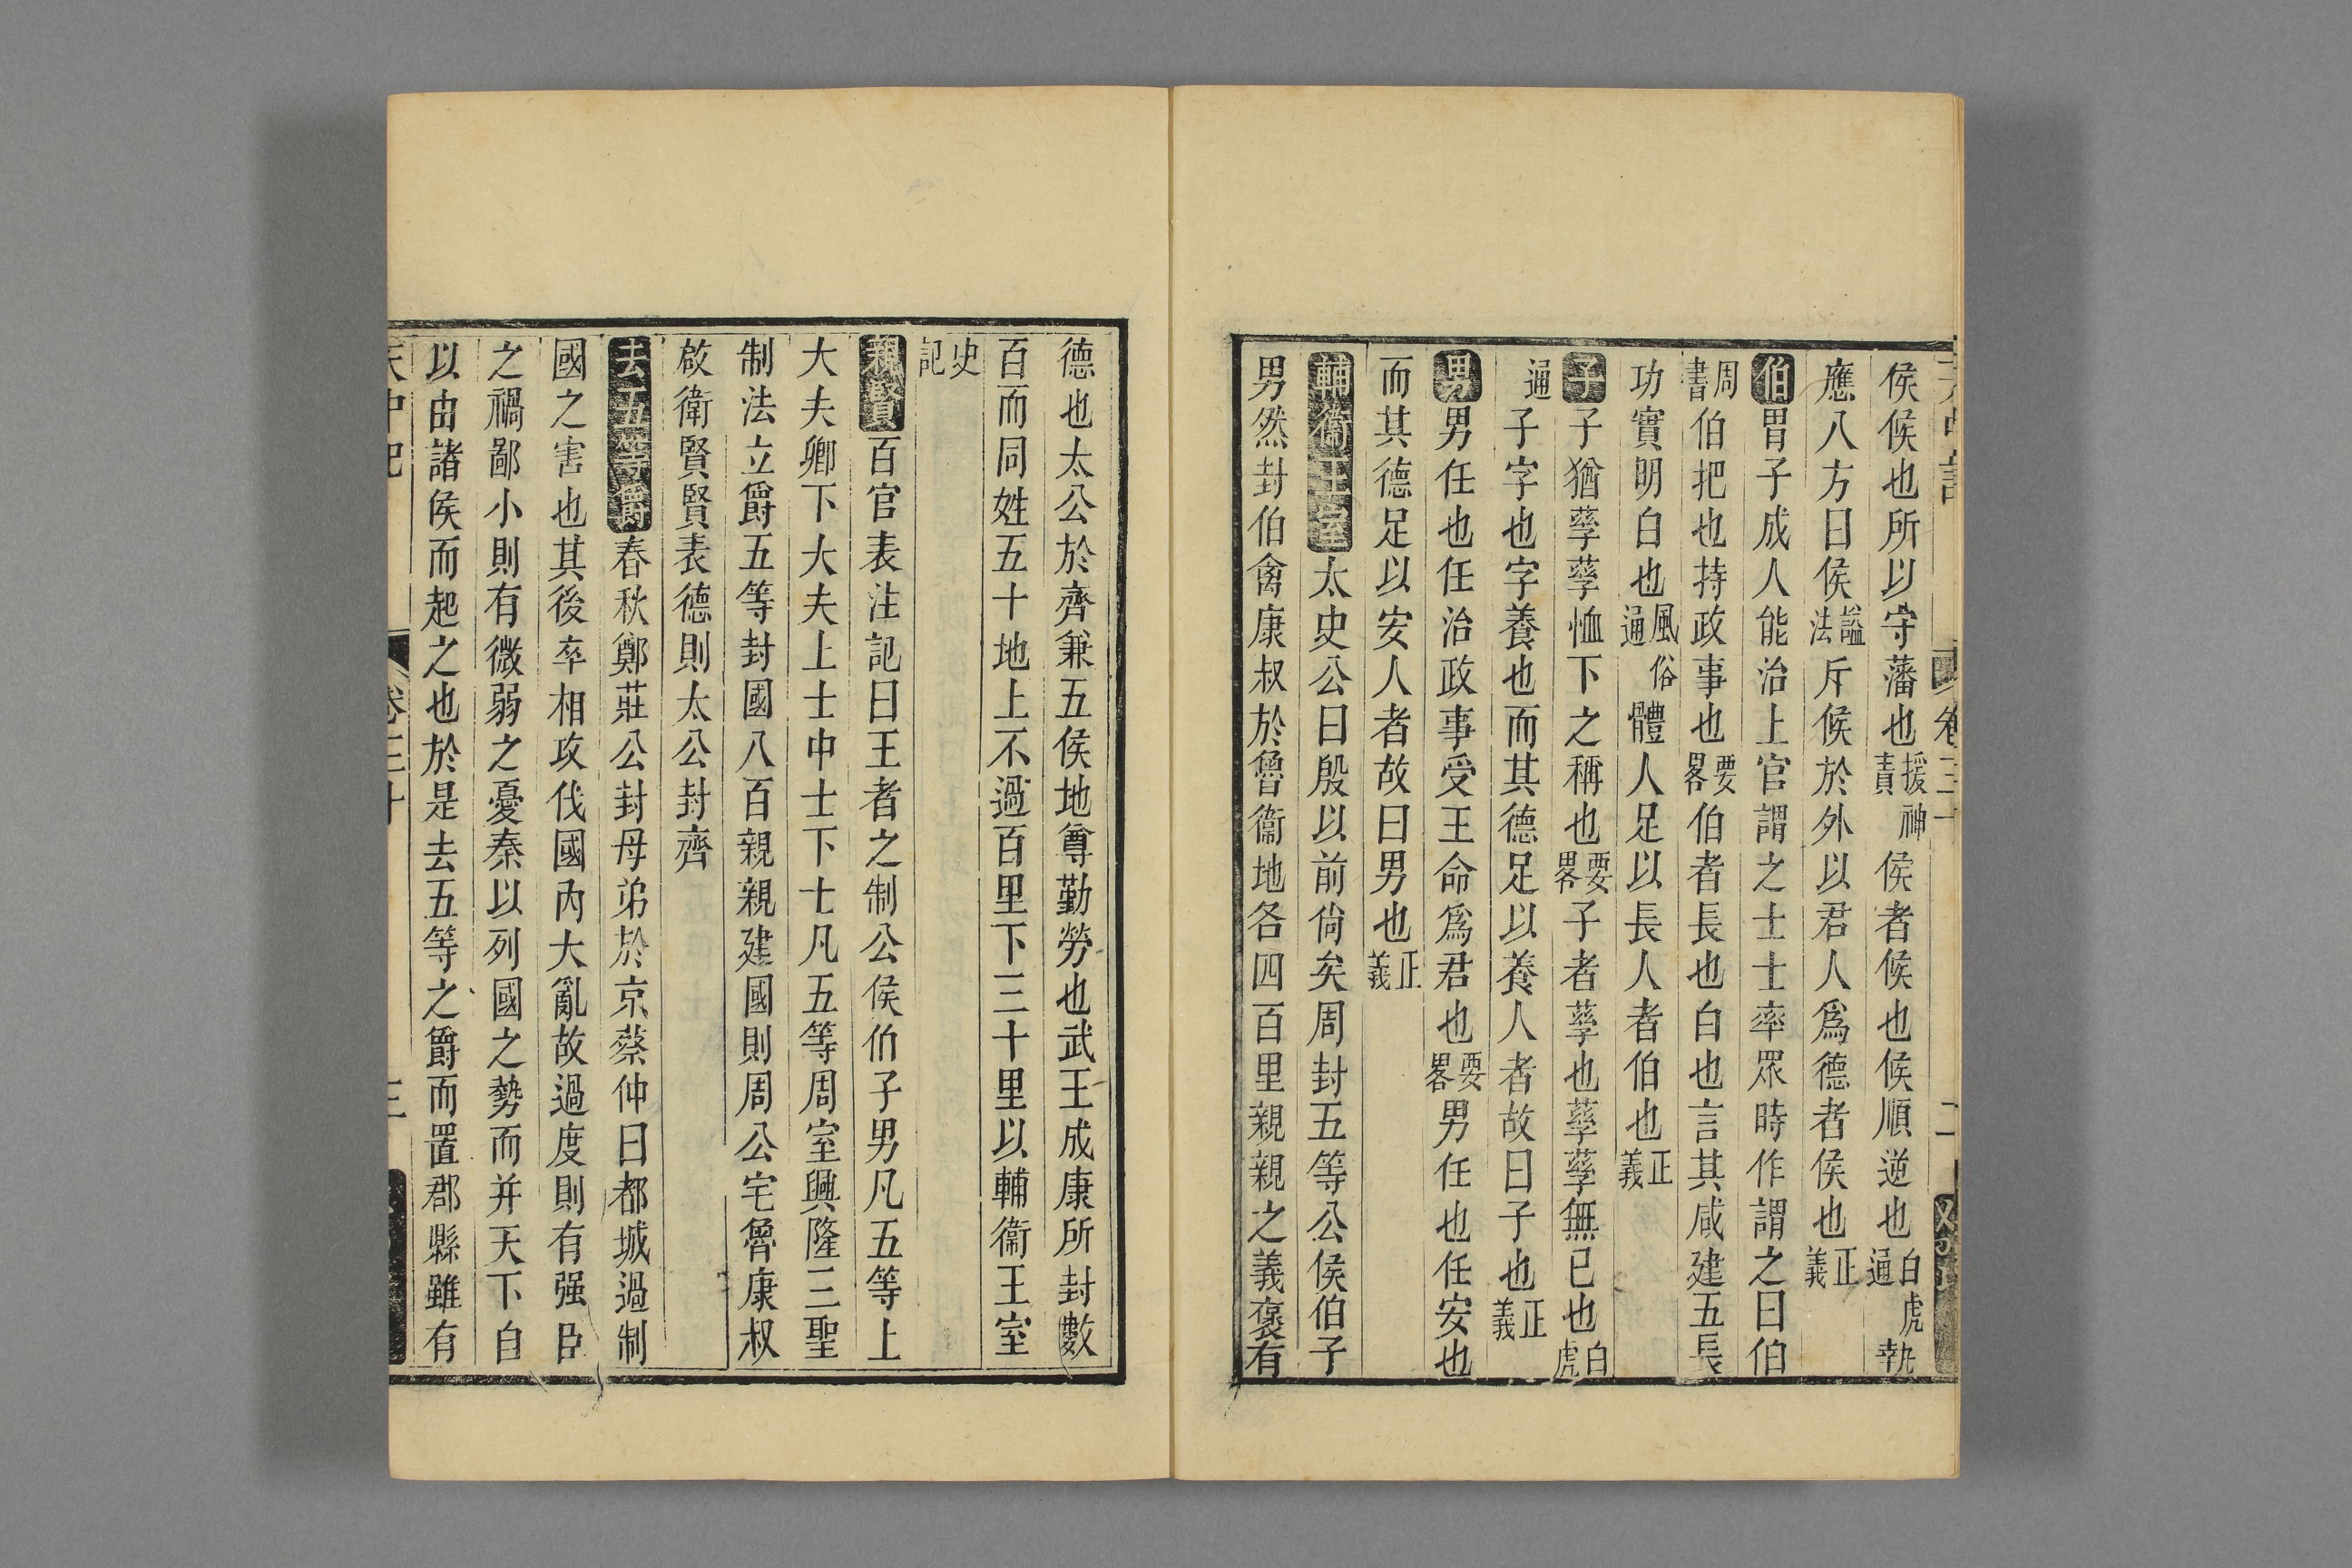 侯候也所以守藩也援神契侯者候也候順逆也白虎通
應八方曰侯謚法斥候於外以君人爲德者侯也正義
伯冑子成人能治上官謂之士士率眾時作謂之曰伯
周書伯把也持政事也要畧伯者長也白也言其咸建五長
功實明白也風俗通體人足以長人者伯也正義
子子猶孳孳恤下之稱也要畧子者孳也孳孳無已也白虎
通子字也字養也而其德足以養人者故曰子也正義
男男任也任治政事受王命爲君也要畧男任也任安也
而其德足以安人者故曰男也正義
輔衞王室太史公曰殷以前尙矣周封五等公侯伯子
男然封伯禽康叔於魯衞地各四百里親親之義褒有
德也太公於齊兼五侯地尊勤勞也武王成康所封數
百而同姓五十地上不過百里下三十里以輔衞王室
史記
親賢百官表注記曰王者之制公侯伯子男凡五等上
大夫卿下大夫上士中士下士凡五等周室興隆三聖
制法立爵五等封國八百親親建國則周公宅魯康叔
啟衛賢賢表德則太公封齊
去五等爵春秋鄭莊公封母弟於京蔡仲曰都城過制
國之害也其後卒相攻伐國內大亂故過度則有强臣
之禍鄙小則有微弱之憂秦以列國之勢而并天下自
以由諸侯而起之也於是去五等之爵而置郡縣雖有
天中記 卷三十 三